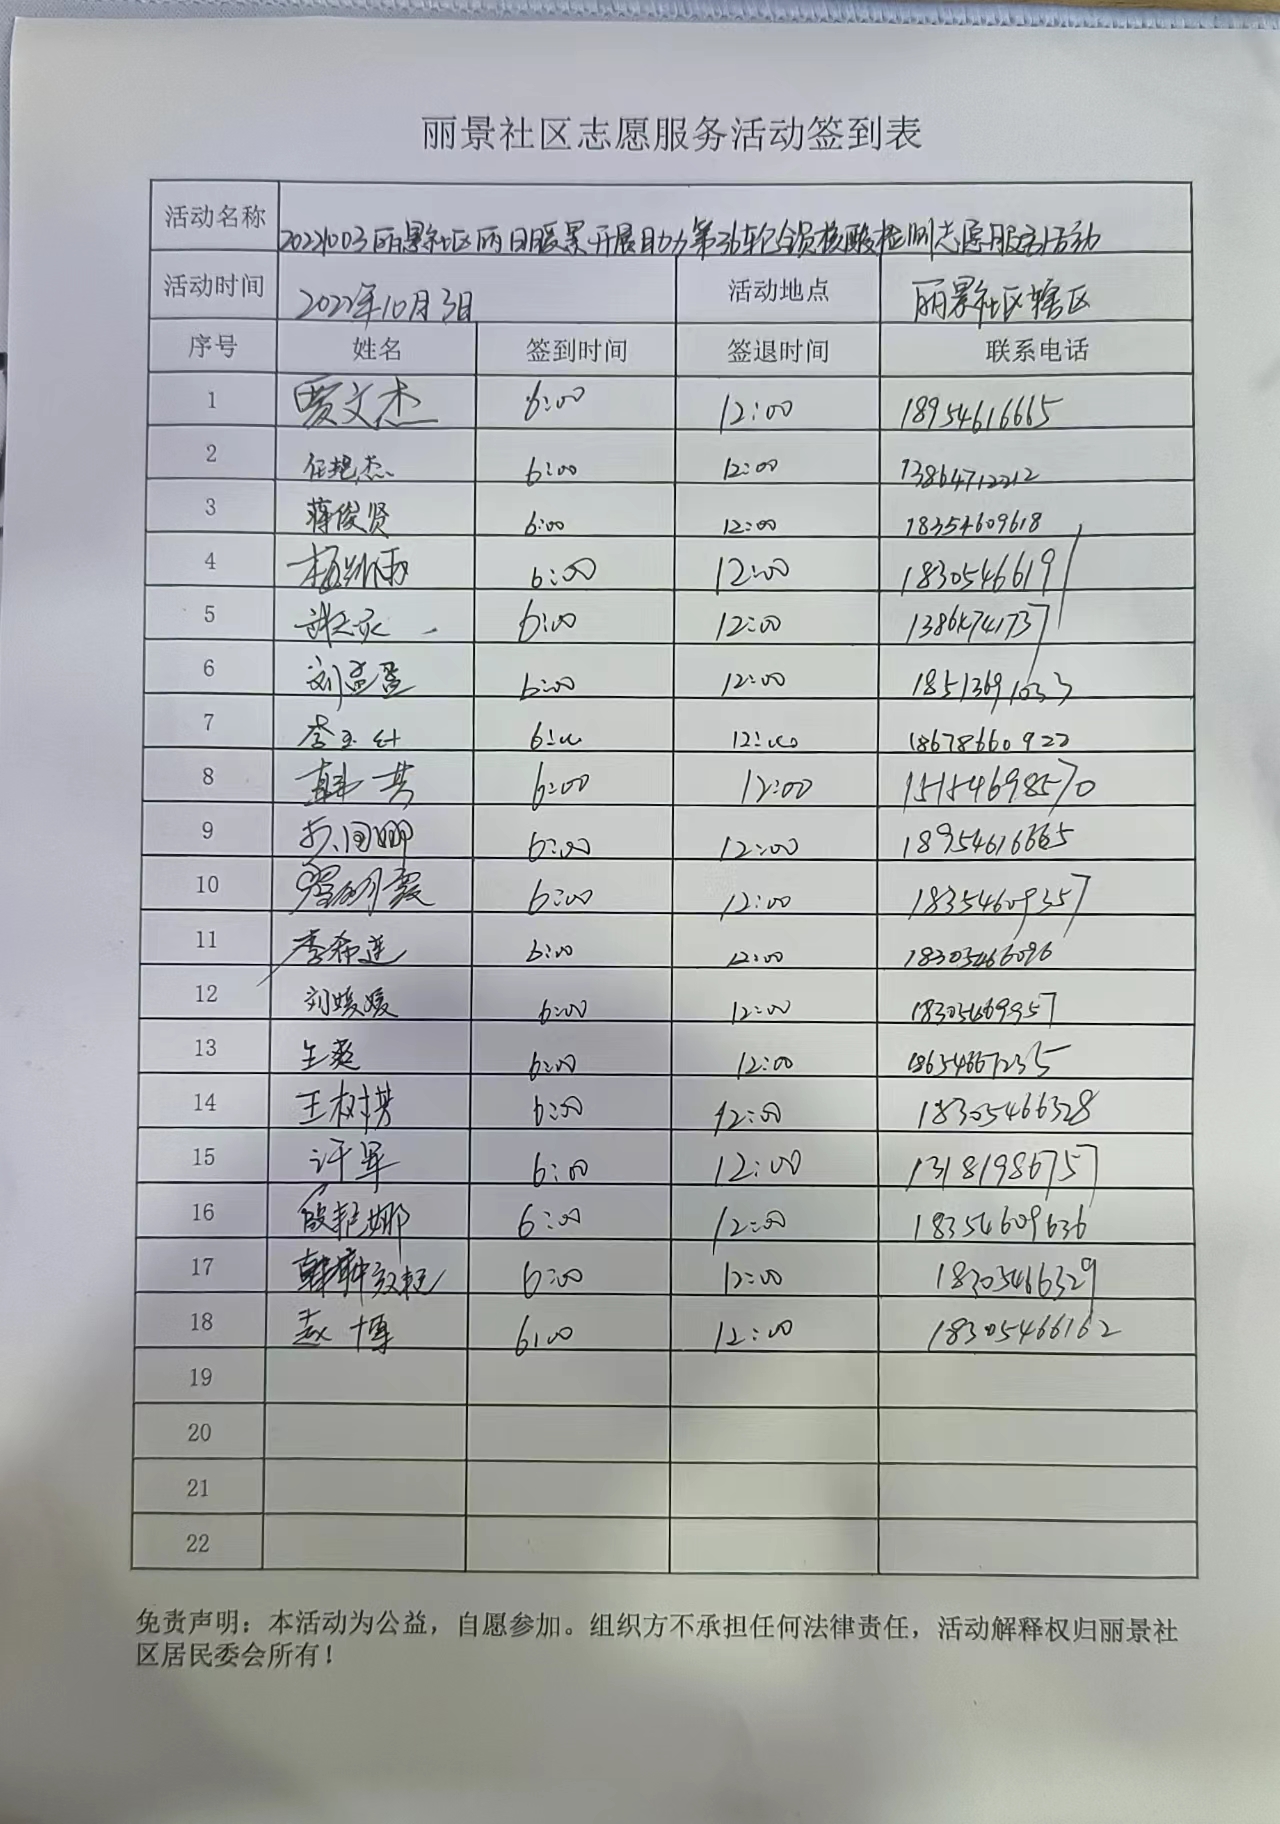 丽景社区志愿服务活动签到表
活动名称 20221003丽景社区丽日暖景开展助力第36轮全员核酸检测志愿服务活动
活动时间 2022年10月3日 活动地点 丽景社区辖区
序号 姓名 签到时间 签退时间 联系电话
1 贾文杰 6:00 12:00 18954616665
2 任艳杰 6:00 12:00 13864712212
3 蒋俊贤 6:00 12:00 18354609618
4 6:00 12:00 18305466191
5 6:00 12:00 13864741737
6 刘孟盈 6:00 12:00 18513691033
7 李玉红 6:00 12:00 18678660922
8 韩芸 6:00 12:00 15154698570
9 6:00 12:00 18954616665
10 翟明霞 6:00 12:00 18354609357
11 李希莲 6:00 12:00 18305466096
12 刘媛媛 6:00 12:00 18305469957
13 王燕 6:00 12:00 18654667235
14 王树芳 6:00 12:00 18305466328
15 许军 6:00 12:00 13181986757
16 段艳娜 6:00 12:00 18354609636
17 6:00 12:00 18305466329
18 赵博 6:00 12:00 18305466162
19
20
21
22
免责声明：本活动为公益，自愿参加。组织方不承担任何法律责任，活动解释权归丽景社
区居民委会所有！